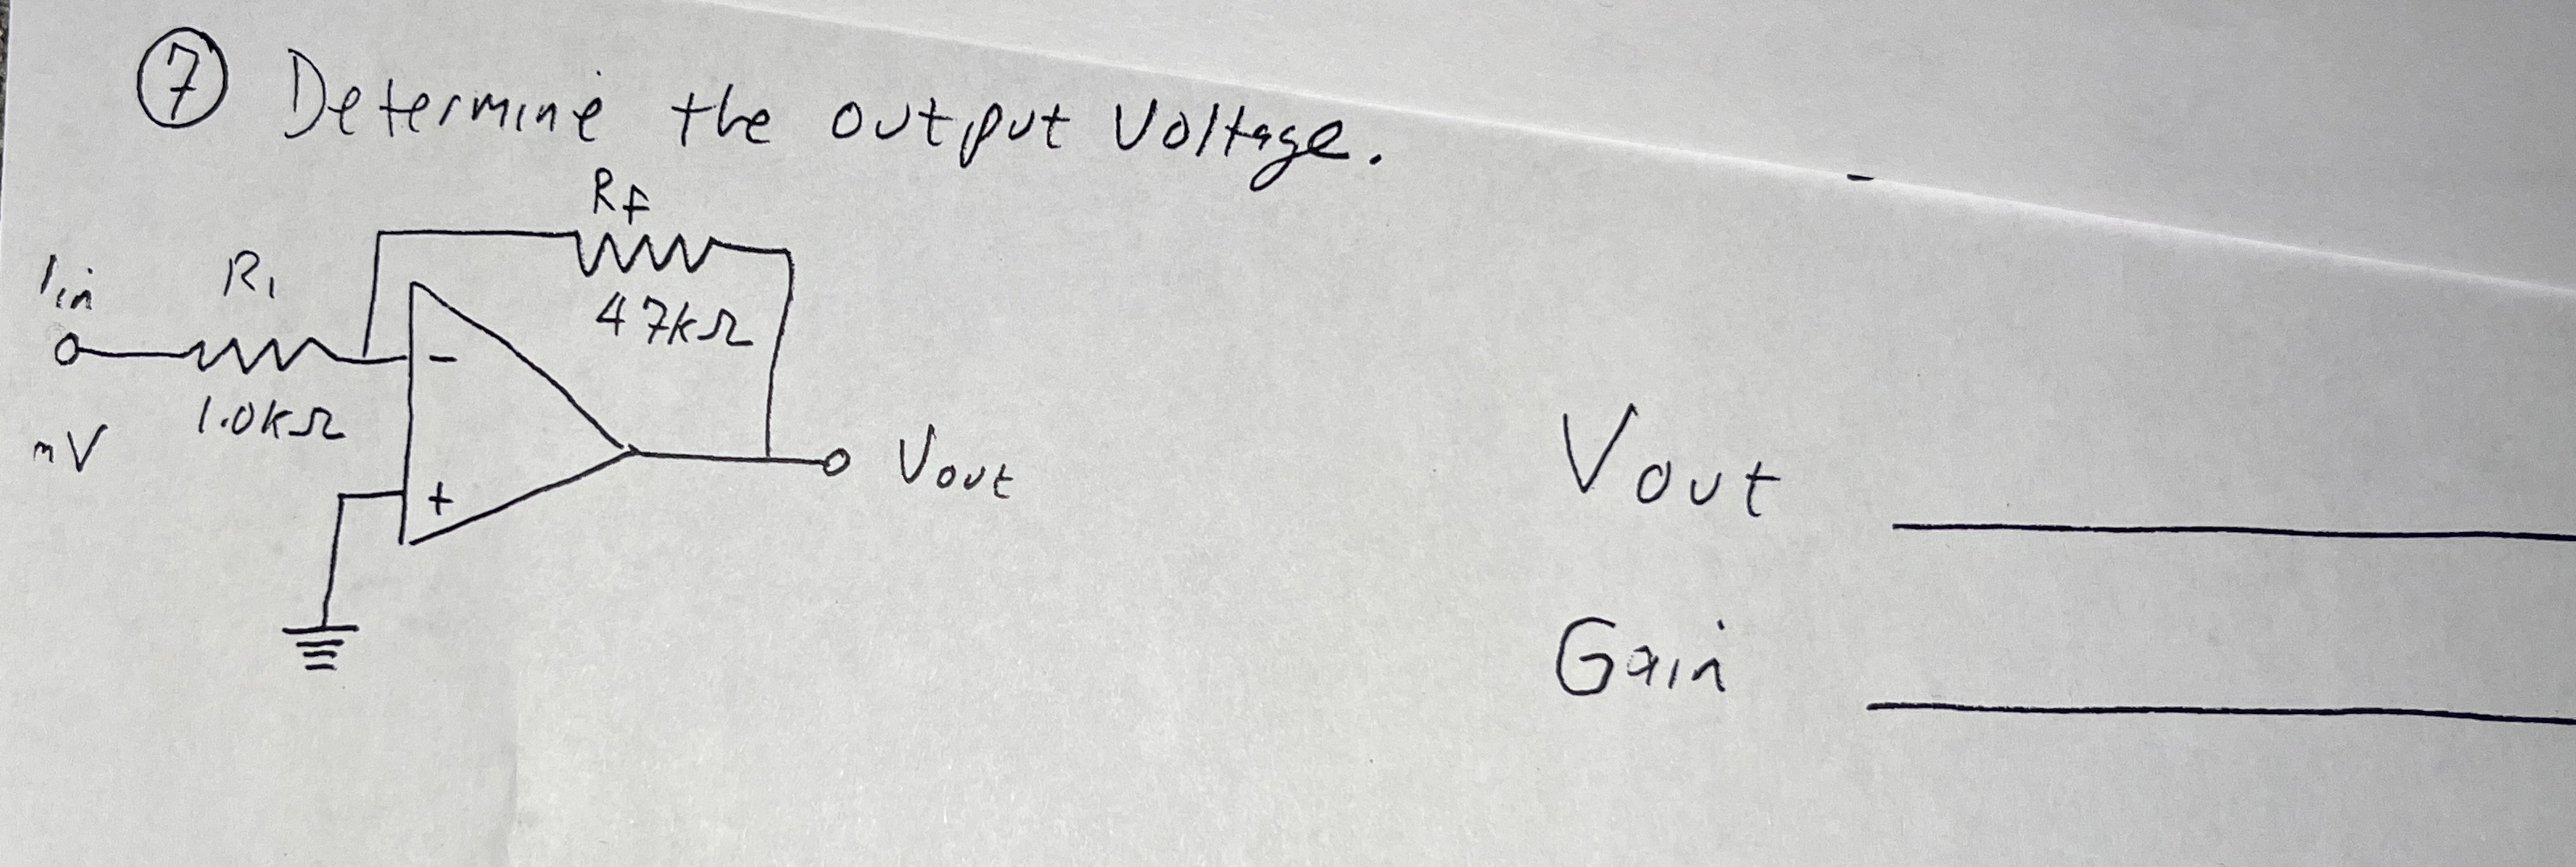 7 Determine the output Voltage.
Rf
R1
47kΩ
1.0kΩ
mV
-
+
Vout
Vout
Gain